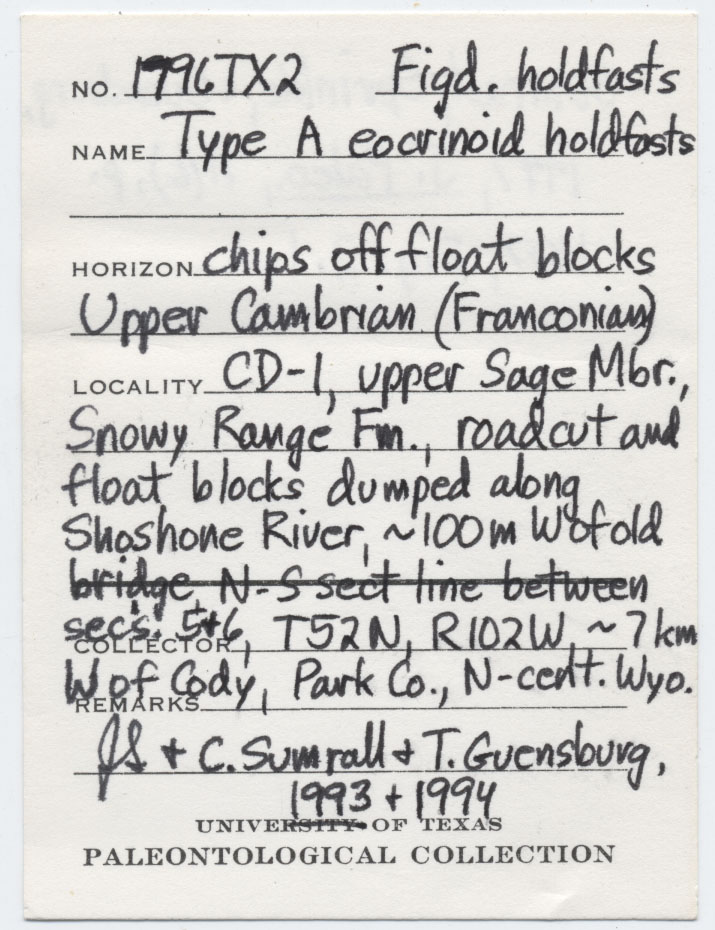 NO. 1996TX2 Figd. holdfasts
NAME Type A eocrinoid holdfasts
HORIZON chips off float blocks
Upper Cambrian (Franconian)
LOCALITY CD-1, upper Sage Mbr.,
Snowy Range Fm., roadcut and
float blocks dumped along
Shoshone River, ~100m W of old
bridge, N-S sect line between
secs. 5+6, T52N, R102W, ~7km
COLLECTOR
W of Cody, Park Co., N-cent. Wyo.
REMARKS
JS + C. Sumrall + T. Guensburg,
1993 + 1994
UNIVERSITY OF TEXAS
PALEONTOLOGICAL COLLECTION